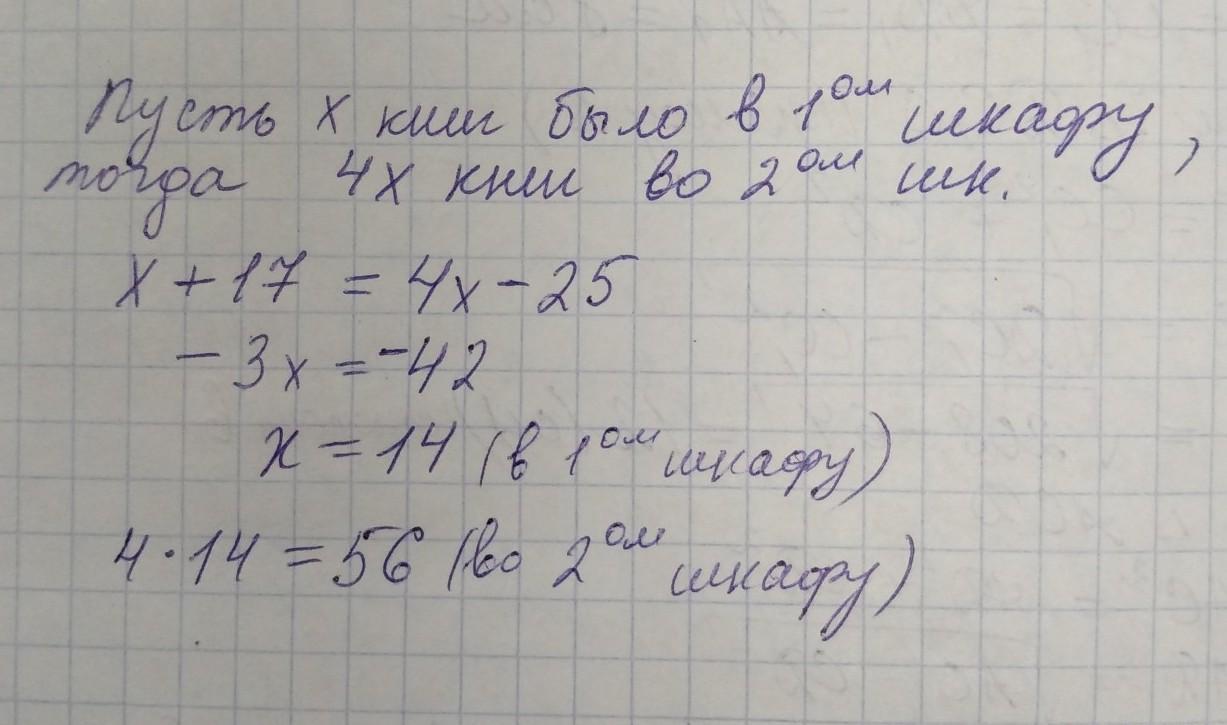 Пусть x книг было в 1ом шкафу,
тогда 4x книг во 2ом шк.
x + 17 = 4x - 25
- 3x = -42
x = 14 (в 1ом шкафу)
4 · 14 = 56 (во 2ом шкафу)